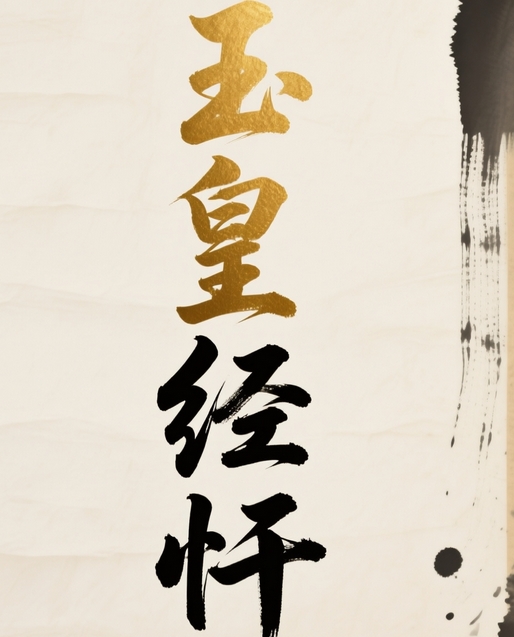 玉皇经忏